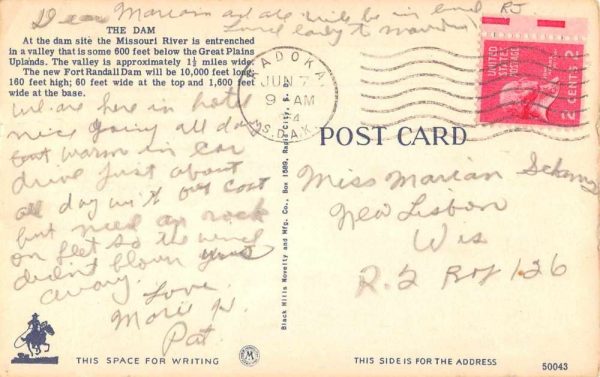 Dear Marian
RJ
THE DAM
At the dam site the Missouri River is entrenched
in a valley that is some 600 feet below the Great Plains
Uplands. The valley is approximately 1½ miles wide.
The new Fort Randall Dam will be 10,000 feet long,
160 feet high; 60 feet wide at the top and 1,600 feet
wide at the base.
We are here in hotel
nice going all day
but warm in car
drive just about
all day with our coat
but need a rock
on feet so the wind
didn't blown
away.
Love
Marie
Pat.
KADOKA
JUN 7
9 AM
S. DAK.
UNITED STATES POSTAGE
2 CENTS 2
POST CARD
Miss Marian
New Lisbon
Wis
R. 2 Box 126
Black Hills Novelty and Mfg. Co., Box 1589, Rapid City, S. D.
THIS SPACE FOR WRITING
THIS SIDE IS FOR THE ADDRESS
50043